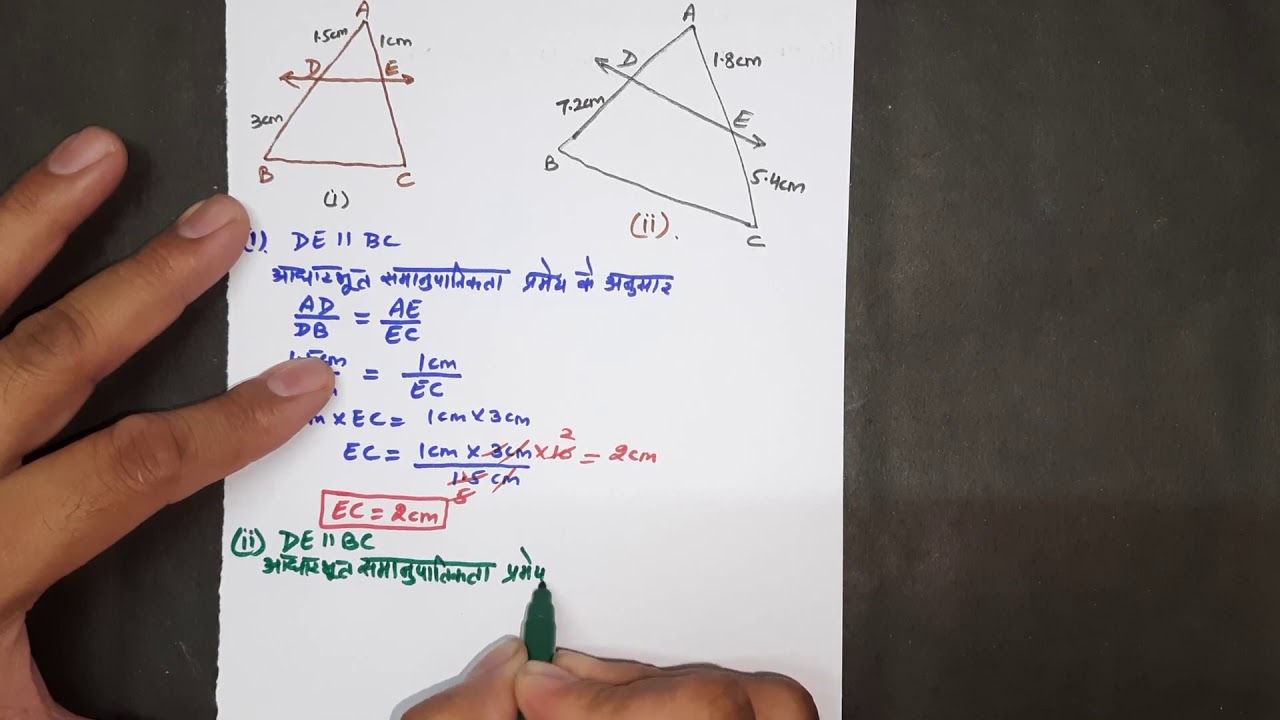 A
1.5cm
1cm
D
E
3cm
B
C
(i)
A
D
1.8cm
7.2cm
E
B
5.4cm
C
(ii).
DE || BC
आधारभूत समानुपातिकता प्रमेय के अनुसार
AD/DB = AE/EC
= 1cm/EC
× EC = 1cm × 3cm
EC = 1cm × 3cm × 10 2 / 1.5 cm 5 = 2cm
EC = 2cm
(ii) DE || BC
आधारभूत समानुपातिकता प्रमेय